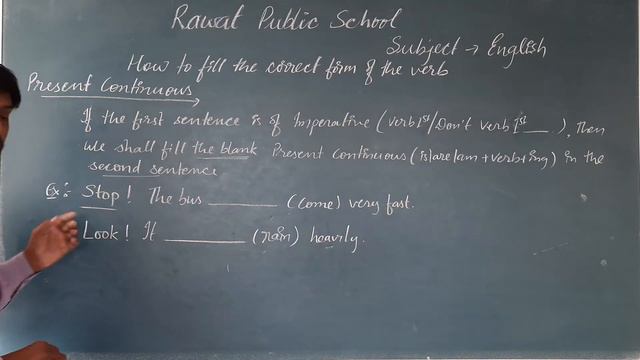 Rawat Public School
Subject → English
How to fill the correct form of the verb
Present Continuous
If the first sentence is of Imperative (Verb Ist/Don't Verb Ist __), Then
we shall fill the blank Present Continuous (is/are/am+verb+ing) in the
second sentence
Ex:- Stop! The bus ________ (come) very fast.
Look! It ________ (rain) heavily.